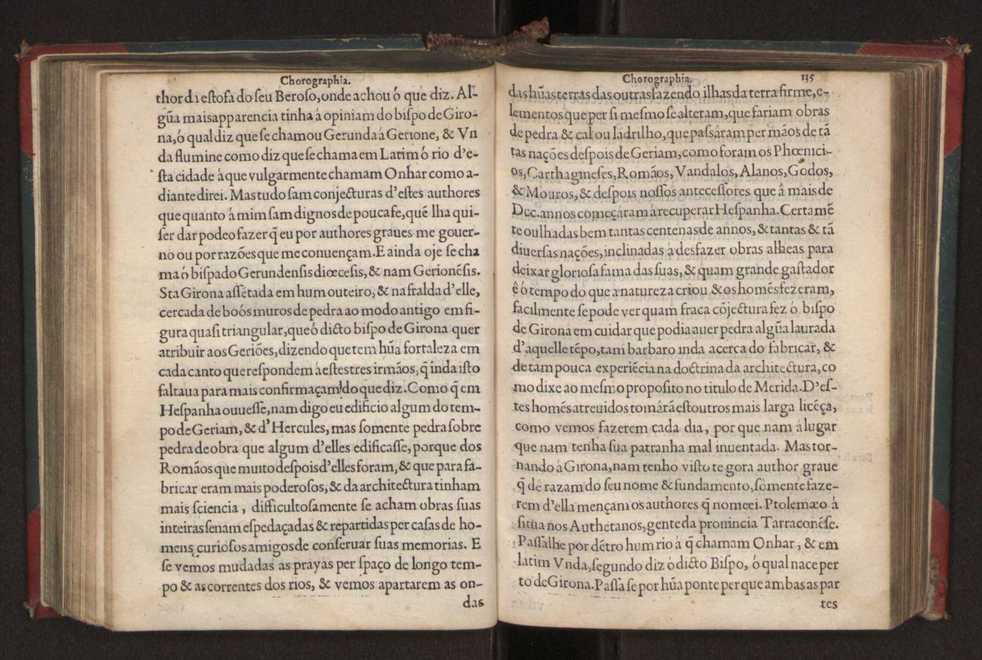 Chorographia.
thor da estofa do seu Beroso, onde achou ó que diz. Al-
gũa mais apparencia tinha à opiniam do bispo de Giro-
na, ó qual diz que se chamou Gerunda à Gerione, & Vn
da flumine como diz que se chama em Latim ó rio d'e-
sta cidade à que vulgarmente chamam Onhar como a-
diante direi. Mas tudo sam conjecturas d'estes authores
que quanto à mim sam dignos de pouca fe, quẽ lha qui-
ser dar podeo fazer q̃ eu por authores graues me gouer-
no ou por razões que me conuençam. E ainda oje se cha
ma ó bispado Gerundensis diœcesis, & nam Gerionẽsis.
Sta Girona assẽtada em hum outeiro, & na fralda d'elle,
cercada de boós muros de pedra ao modo antigo em fi-
gura quasi triangular, que ó dicto bispo de Girona quer
atribuir aos Geriões, dizendo que tem hũa fortaleza em
cada canto que respondem à estes tres irmãos, q̃ inda isto
faltaua para mais confirmaçam do que diz. Como q̃ em
Hespanha ouuesse, nam digo eu edificio algum do tem-
po de Geriam, & d'Hercules, mas somente pedra sobre
pedra de obra que algum d'elles edificasse, porque dos
Romãos que muito despois d'elles foram, & que para fa-
bricar eram mais poderosos, & da architectura tinham
mais sciencia, difficultosamente se acham obras suas
inteiras senam espedaçadas & repartidas per casas de ho-
mens curiosos amigos de conseruar suas memorias. E
se vemos mudadas as prayas per spaço de longo tem-
po & as correntes dos rios, & vemos apartarem as on-
das
Chorographia. 115
das hũas terras das outras fazendo ilhas da terra firme, e-
lementos que per si mesmo se alteram, que fariam obras
de pedra & cal ou ladrilho, que passáram per mãos de tã
tas nações despois de Geriam, como foram os Phœnici-
os, Carthagineses, Romãos, Vandalos, Alanos, Godos,
& Mouros, & despois nossos antecessores que à mais de
Dcc. annos começáram à recuperar Hespanha. Certamẽ
te oulhadas bem tantas centenas de annos, & tantas & tã
diuersas nações, inclinadas à desfazer obras alheas para
deixar gloriosa fama das suas, & quam grande gastador
ê ó tempo do que a natureza criou & os homẽs fezeram,
facilmente se pode ver quam fraca cõjectura fez ó bispo
de Girona em cuidar que podia auer pedra algũa laurada
d'aquelle tẽpo, tam barbaro inda acerca do fabricar, &
de tam pouca experiẽcia na doctrina da architectura, co
mo dixe ao mesmo proposito no titulo de Merida. D'es-
tes homẽs atreuidos tomárã estoutros mais larga licẽça,
como vemos fazerem cada dia, por que nam à lugar
que nam tenha sua patranha mal inuentada. Mas tor-
nando à Girona, nam tenho visto te gora author graue
q̃ dè razam do seu nome & fundamento, sómente faze-
rem d'ella mençam os authores q̃ nomeei. Ptolemæo à
situa nos Authetanos, gente da prouincia Tarraconẽse.
Passalhe por dẽtro hum rio à q̃ chamam Onhar, & em
latim Vnda, segundo diz ó dicto Bispo, ó qual nace per
to de Girona. Passa se por hũa ponte per que ambas as par
tes